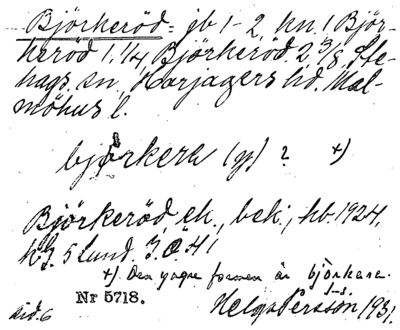 Björkeröd: jb 1-2, kn. 1 Björ-
keröd 1. 1/4, Björkeröd 2. 3/8. Ste-
hags sn, Harjagers hd. Mal-
möhus l.
björkera (y) ? +)
Björkeröd, ek., bsk., hb. 1924.
5 Lund. 3. Ö. 41
+) Den yngre formen är björkara.
Nr 5718.
Helga Persson 1931.